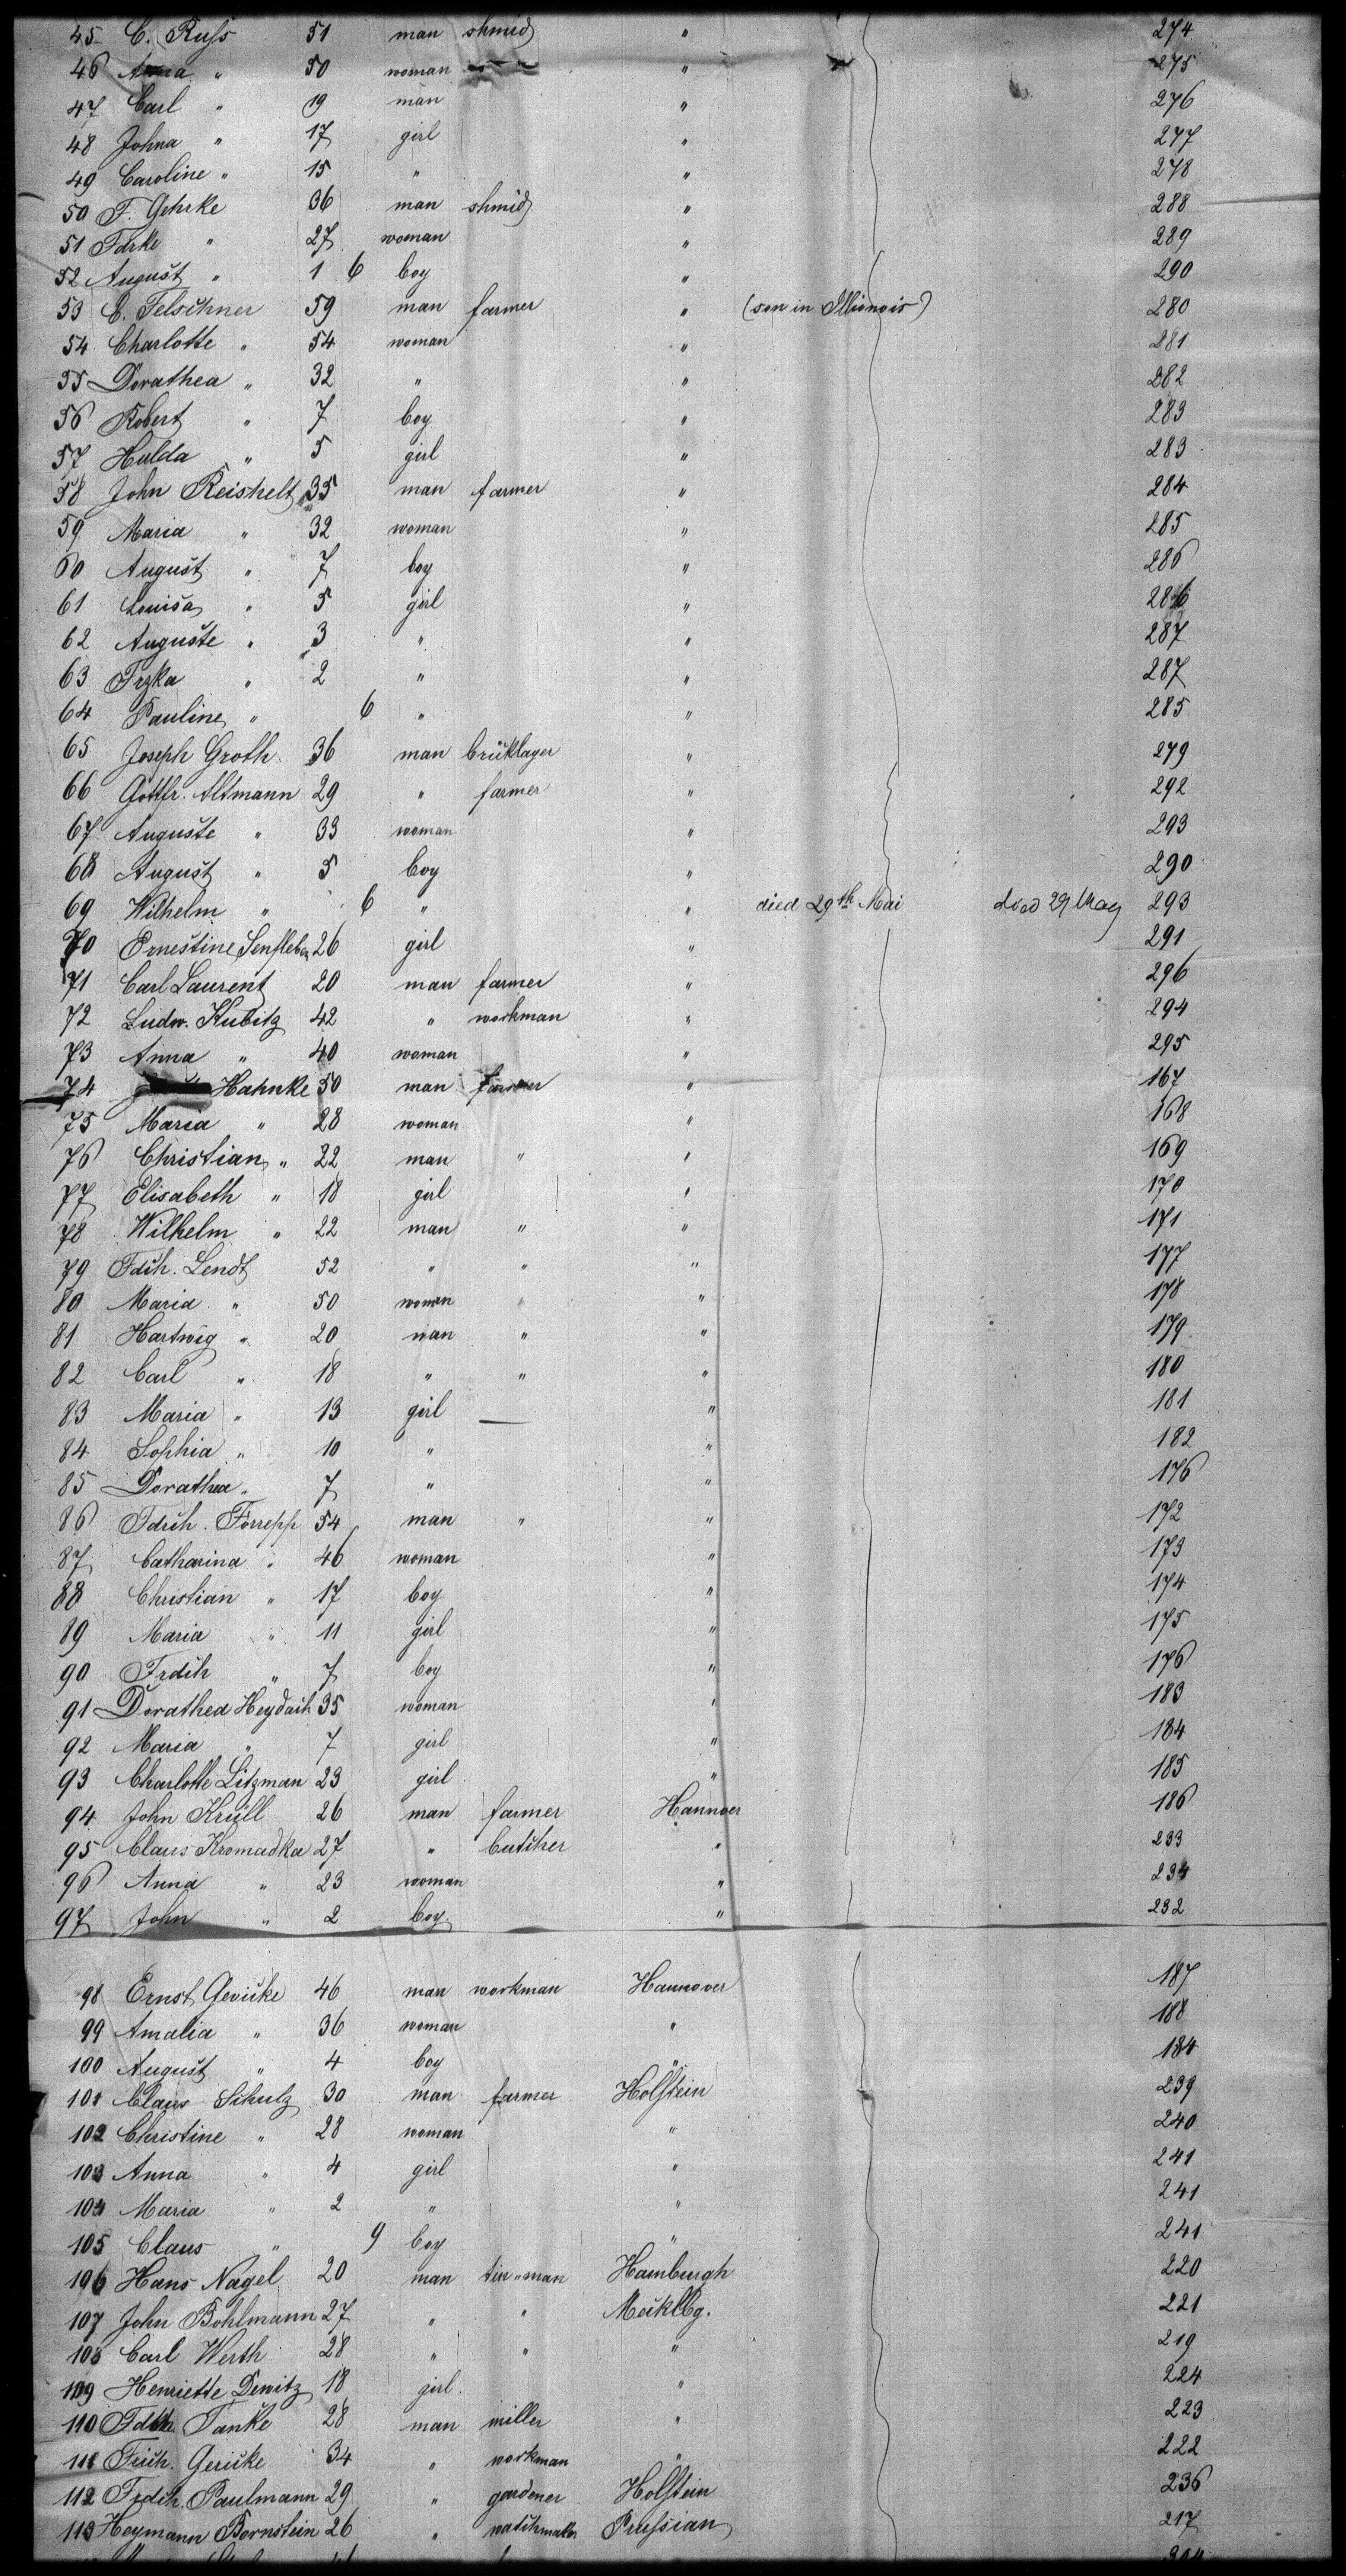 45 C. Russ 51 man shmid " 274
46 Anna " 50 woman " 275
47 Carl " 19 man " 276
48 Johna " 17 girl " 277
49 Caroline " 15 " " 278
50 F. Gehrke 36 man shmid " 288
51 Fdrke " 27 woman " 289
52 August " 1 6 boy " 290
53 E. Felschner 59 man farmer " (son in Illionois) 280
54 Charlotte " 54 woman " 281
55 Dorathea " 32 " " 282
56 Robert " 7 boy " 283
57 Hulda " 5 girl " 283
58 John Reishelt 35 man farmer " 284
59 Maria " 32 woman " 285
60 August " 7 boy " 286
61 Louisa " 5 girl " 286
62 Auguste " 3 " " 287
63 Frzka " 2 " " 287
64 Pauline " 6 " " 285
65 Joseph Groth 36 man brüklager " 279
66 Gottfr. Altmann 29 " farmer " 292
67 Auguste " 33 woman " 293
68 August " 5 boy " 290
69 Wilhelm " 6 " " died 29th Mai died 29 May 293
70 Ernestine Senfleben 26 girl " 291
71 Carl Laurent 20 man farmer " 296
72 Ludw. Kubitz 42 " workman " 294
73 Anna " 40 woman " 295
74 Hahnke 50 man farmer " 167
75 Maria " 28 woman " 168
76 Christian " 22 man " " 169
77 Elisabeth " 18 girl " 170
78 Wilhelm " 22 man " " 171
79 Fdch. Lendt 52 " " " 177
80 Maria " 50 woman " " 178
81 Hartwig " 20 man " " 179
82 Carl " 18 " " " 180
83 Maria " 13 girl — " 181
84 Sophia " 10 " " 182
85 Dorathea " 7 " " 176
86 Fdrch. Forrepp 54 man " " 172
87 Catharina " 46 woman " 173
88 Christian " 17 boy " 174
89 Maria " 11 girl " 175
90 Frdch " 7 boy " 176
91 Dorathea Heydach 35 woman " 183
92 Maria " 7 girl " 184
93 Charlotte Litzman 23 girl " 185
94 John Krüll 26 man farmer Hannoer 186
95 Claus Kromadka 27 " butcher " 233
96 Anna " 23 woman " 234
97 John " 2 boy " 232
98 Ernst Gericke 46 man workman Hannover 187
99 Amalia " 36 woman " 188
100 August " 4 boy " 184
101 Claus Schulz 30 man farmer Holstein 239
102 Christine " 28 woman " 240
103 Anna " 4 girl " 241
104 Maria " 2 " " 241
105 Claus " 9 boy " 241
106 Hans Nagel 20 man tin-man Hamburgh 220
107 John Bohlmann 27 " " Mecklbg. 221
108 Carl Werth 28 " " " 219
109 Henriette Dewitz 18 girl " 224
110 Fdch. Tanke 28 man miller " 223
111 Frch. Gericke 34 " workman " 222
112 Frdch. Paulmann 29 " gardener Holstein 236
113 Heymann Bornstein 26 " watchmaker Prussian 217